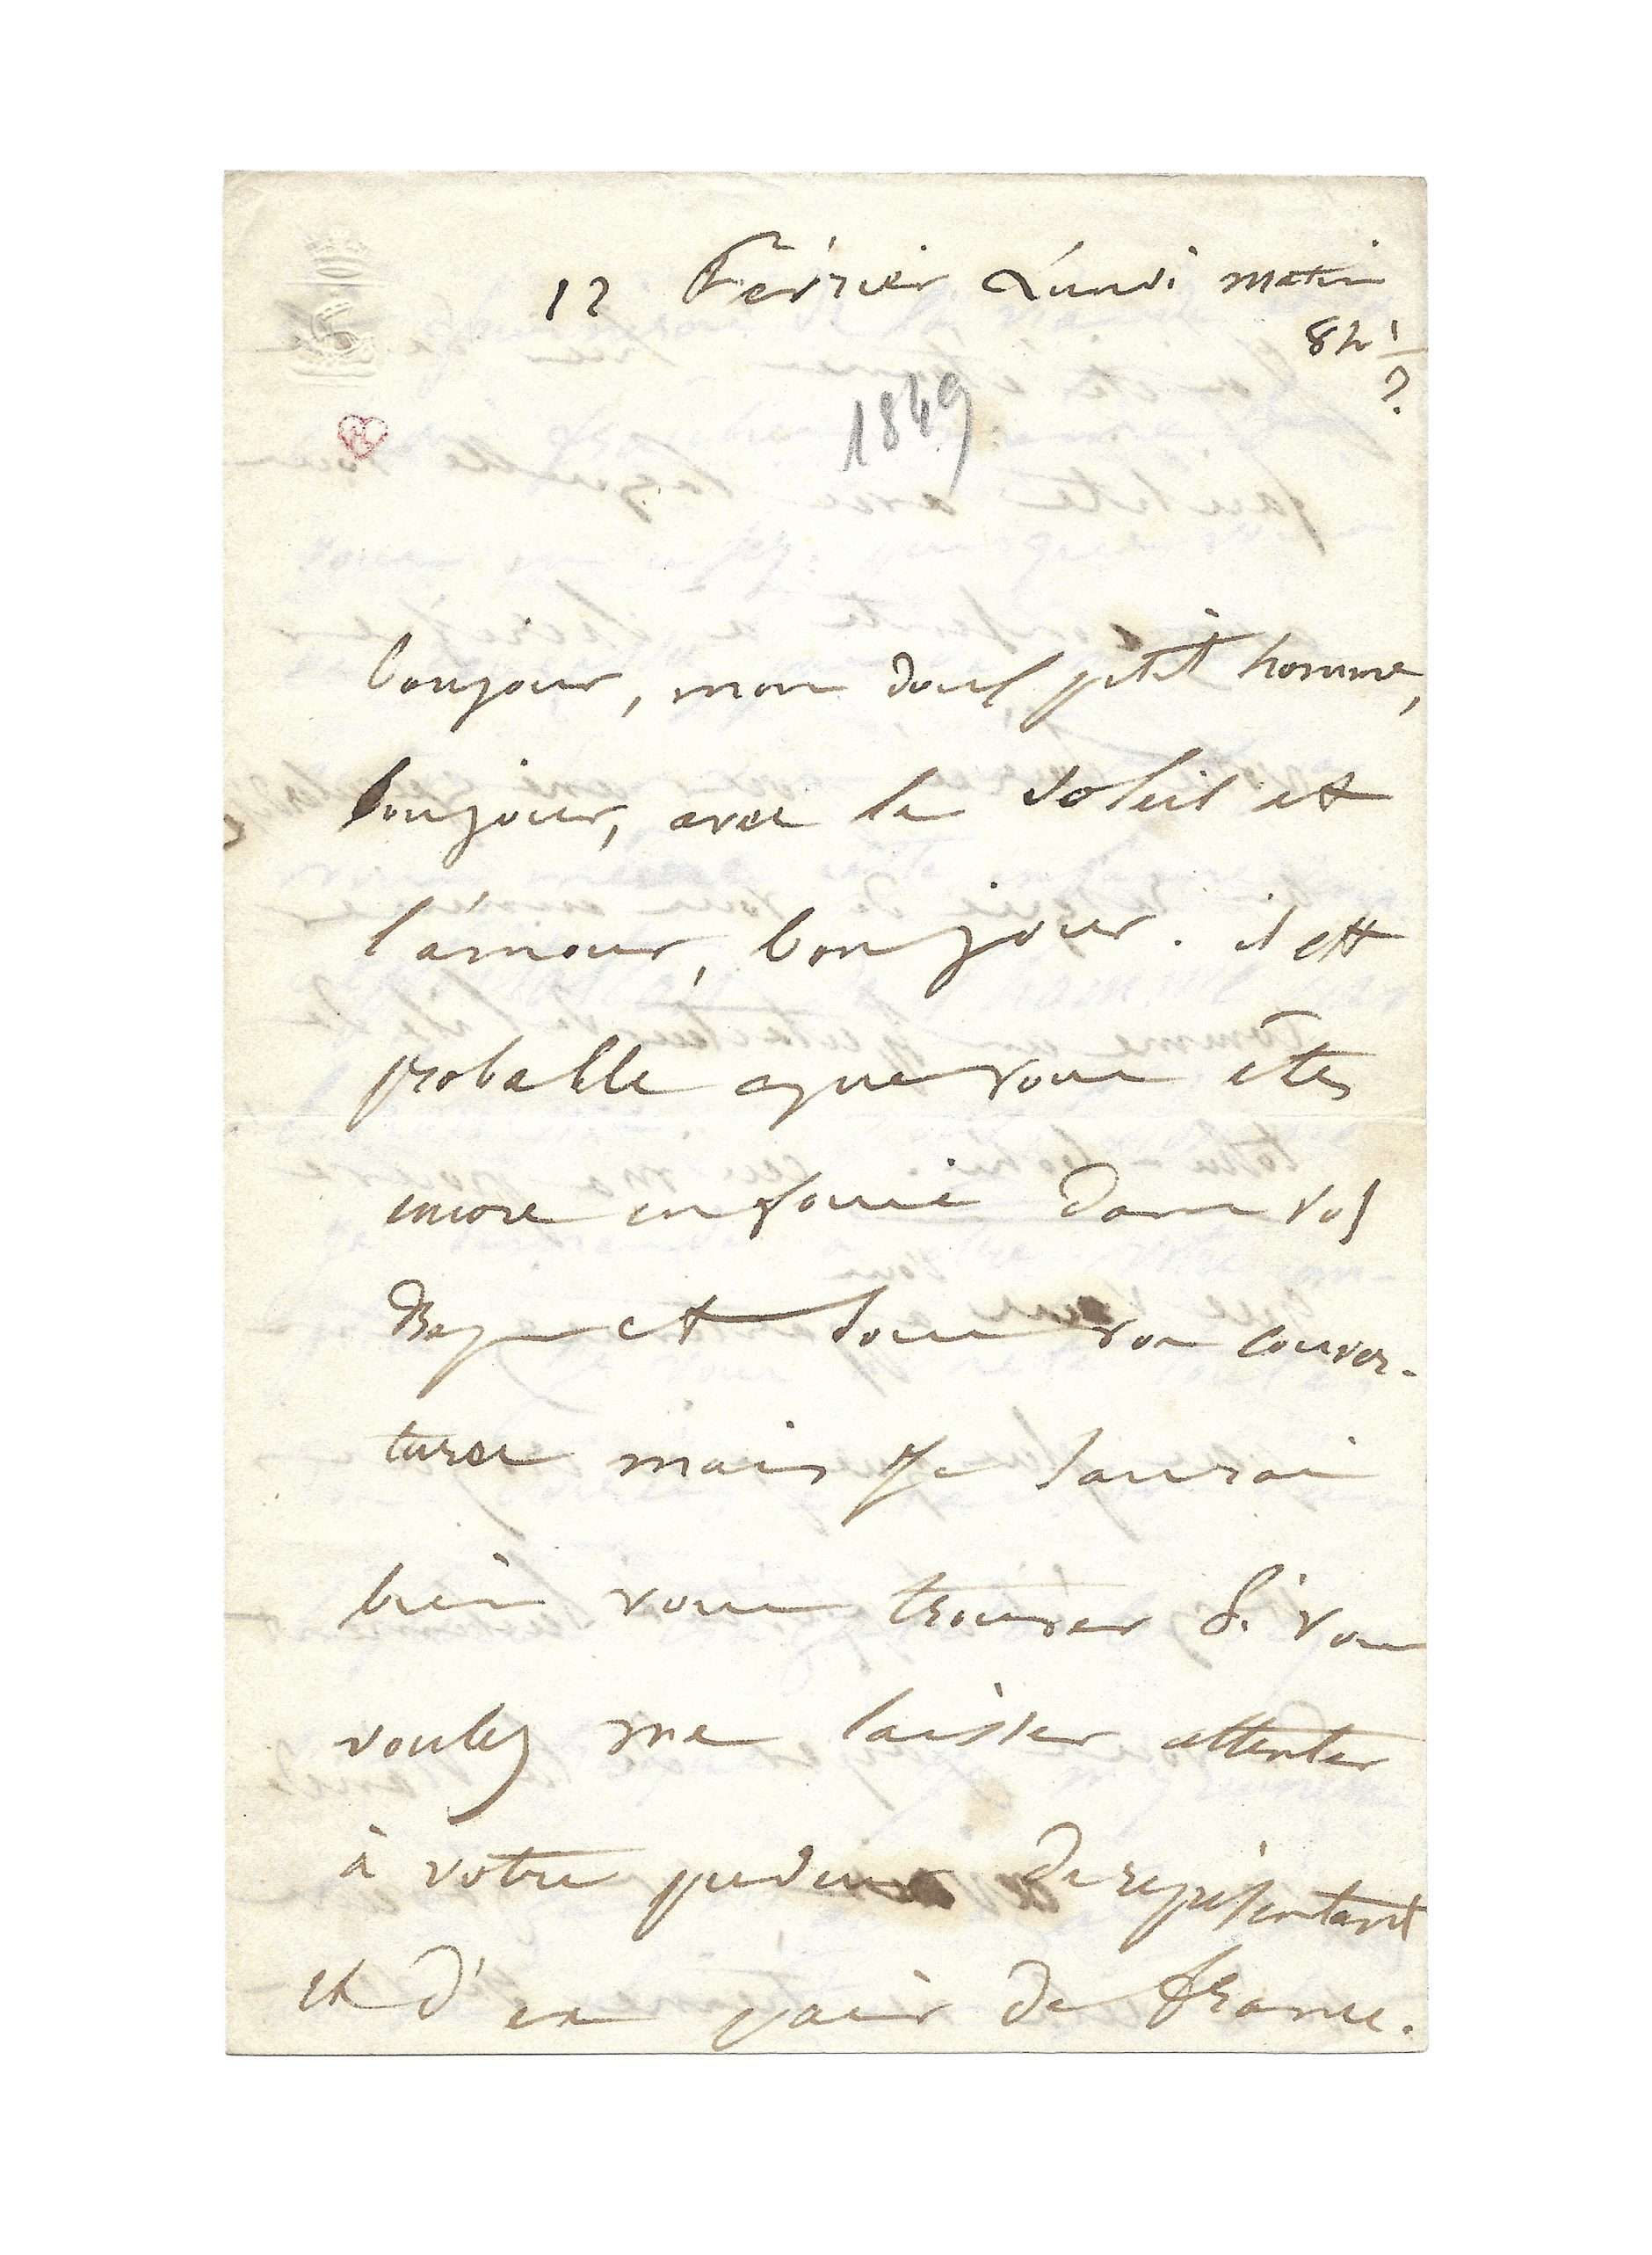 12 Février Lundi matin
8h 1/2
1849
bonjour, mon doux petit homme,
bonjour, avec le soleil et
l'amour, bonjour. il est
probable que vous êtes
encore enfoui dans vos
draps et sous vos couver-
tures mais je saurai
bien vous trouver si vous
voulez me laisser attenter
à votre pudeur de représentant
et d'ex pair de france.